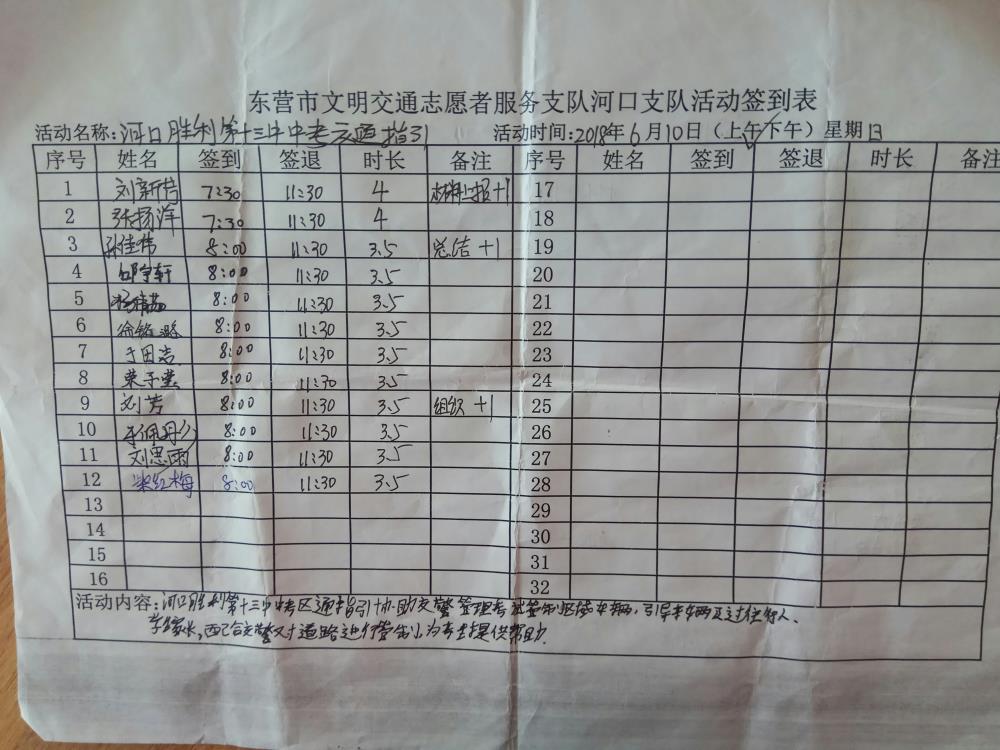 东营市文明交通志愿者服务支队河口支队活动签到表
活动名称:河口胜利第十三中中考交通指引 活动时间:2018年6月10日(上午下午)星期日
序号 姓名 签到 签退 时长 备注 序号 姓名 签到 签退 时长 备注
1 7:30 11:30 4 材料上报+1 17
2 张扬洋 7:30 11:30 4 18
3 孙佳伟 8:00 11:30 3.5 总结+1 19
4 邱宇轩 8:00 11:30 3.5 20
5 8:00 11:30 3.5 21
6 8:00 11:30 3.5 22
7 于田洁 8:00 11:30 3.5 23
8 8:00 11:30 3.5 24
9 刘芳 8:00 11:30 3.5 组织+1 25
10 8:00 11:30 3.5 26
11 刘思雨 8:00 11:30 3.5 27
12 梁红梅 8:00 11:30 3.5 28
13 29
14 30
15 31
16 32
活动内容:河口胜利第十三中考区通指引协助交警管理考试管制区停车辆,引导车辆及过往行人
家长,配合交警对道路进行管制,为考生提供帮助.